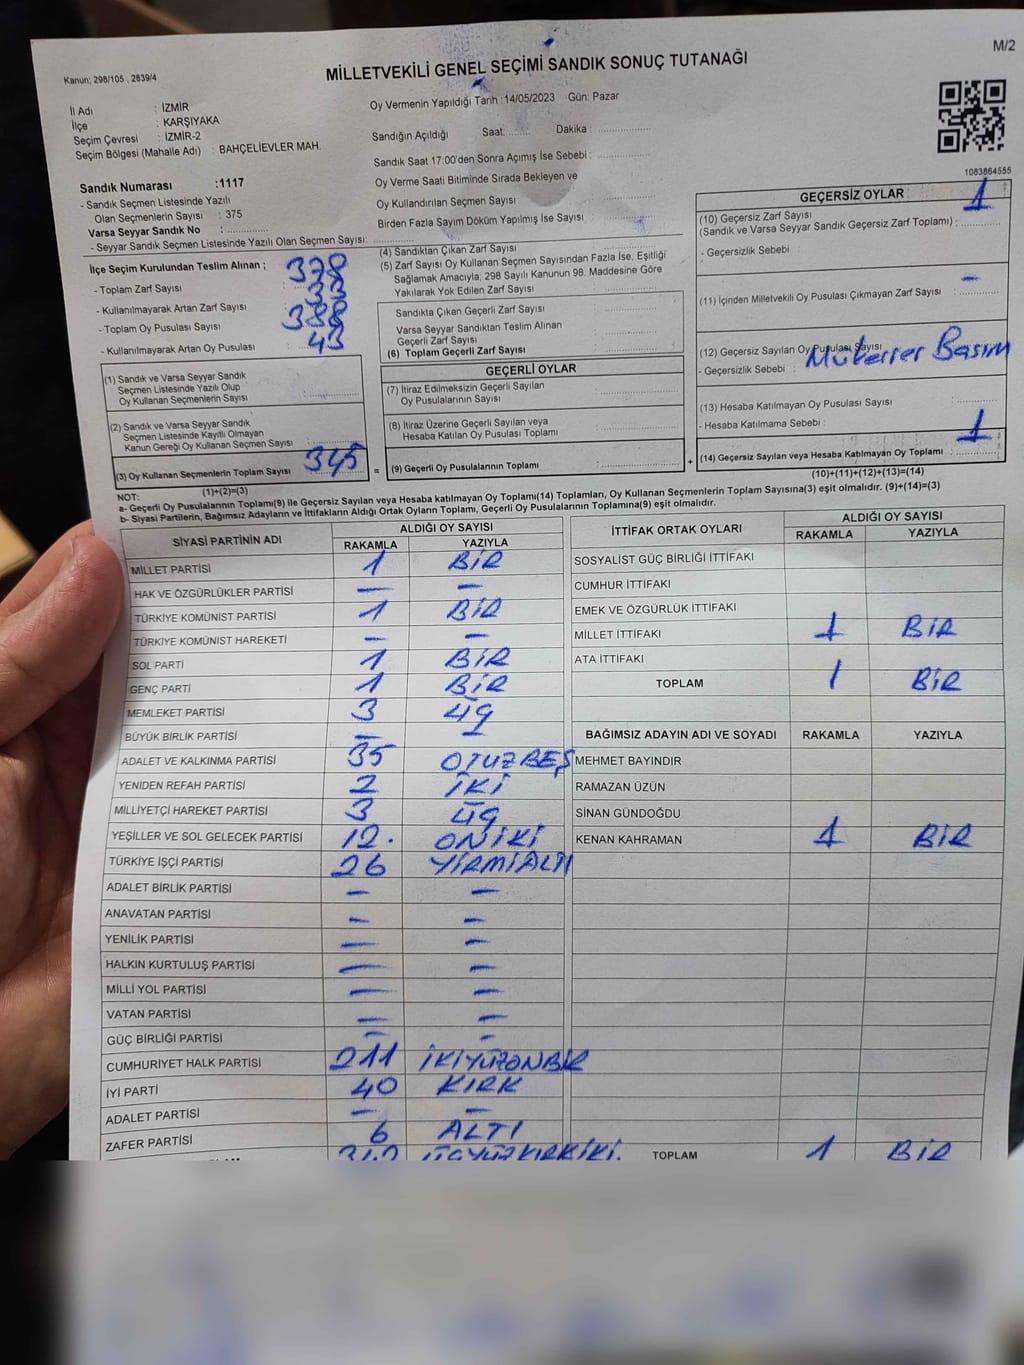 M/2
Kanun: 298/105 , 2839/4
MİLLETVEKİLİ GENEL SEÇİMİ SANDIK SONUÇ TUTANAĞI
İl Adı : İZMİR
İlçe : KARŞIYAKA
Seçim Çevresi : İZMİR-2
Seçim Bölgesi (Mahalle Adı) : BAHÇELİEVLER MAH.
Sandık Numarası :1117
- Sandık Seçmen Listesinde Yazılı
Olan Seçmenlerin Sayısı : 375
Varsa Seyyar Sandık No : ..............
- Seyyar Sandık Seçmen Listesinde Yazılı Olan Seçmen Sayısı: ..............
Oy Vermenin Yapıldığı Tarih :14/05/2023 Gün: Pazar
Sandığın Açıldığı Saat: ....... Dakika : ..............
Sandık Saat 17:00'den Sonra Açımış İse Sebebi : ..............
Oy Verme Saati Bitiminde Sırada Bekleyen ve
Oy Kullandırılan Seçmen Sayısı : ..............
Birden Fazla Sayım Döküm Yapılmış İse Sayısı : ..............
1083864555
İlçe Seçim Kurulundan Teslim Alınan ;
- Toplam Zarf Sayısı : 378
- Kullanılmayarak Artan Zarf Sayısı : 33
- Toplam Oy Pusulası Sayısı : 388
- Kullanılmayarak Artan Oy Pusulası : 43
(1) Sandık ve Varsa Seyyar Sandık
Seçmen Listesinde Yazılı Olup
Oy Kullanan Seçmenlerin Sayısı : ..............
(2) Sandık ve Varsa Seyyar Sandık
Seçmen Listesinde Kayıtlı Olmayan
Kanun Gereği Oy Kullanan Seçmen Sayısı : ..............
(3) Oy Kullanan Seçmenlerin Toplam Sayısı : 345
(1)+(2)=(3)
(4) Sandıktan Çıkan Zarf Sayısı : ..............
(5) Zarf Sayısı Oy Kullanan Seçmen Sayısından Fazla İse, Eşitliği
Sağlamak Amacıyla; 298 Sayılı Kanunun 98. Maddesine Göre
Yakılarak Yok Edilen Zarf Sayısı : ..............
Sandıkta Çıkan Geçerli Zarf Sayısı : ..............
Varsa Seyyar Sandıktan Teslim Alınan
Geçerli Zarf Sayısı : ..............
(6) Toplam Geçerli Zarf Sayısı : ..............
GEÇERLİ OYLAR
(7) İtiraz Edilmeksizin Geçerli Sayılan
Oy Pusulalarının Sayısı : ..............
(8) İtiraz Üzerine Geçerli Sayılan veya
Hesaba Katılan Oy Pusulası Toplamı : ..............
= (9) Geçerli Oy Pusulalarının Toplamı : .............. +
GEÇERSİZ OYLAR
(10) Geçersiz Zarf Sayısı
(Sandık ve Varsa Seyyar Sandık Geçersiz Zarf Toplamı) : 1
- Geçersizlik Sebebi : ..............
(11) İçinden Milletvekili Oy Pusulası Çıkmayan Zarf Sayısı : –
(12) Geçersiz Sayılan Oy Pusulası Sayısı
- Geçersizlik Sebebi : Mükerrer Basım
(13) Hesaba Katılmayan Oy Pusulası Sayısı : ..............
- Hesaba Katılmama Sebebi : ..............
(14) Geçersiz Sayılan veya Hesaba Katılmayan Oy Toplamı : 1
(10)+(11)+(12)+(13)=(14)
NOT:
a- Geçerli Oy Pusulalarının Toplamı(9) ile Geçersiz Sayılan veya Hesaba katılmayan Oy Toplamı(14) Toplamları, Oy Kullanan Seçmenlerin Toplam Sayısına(3) eşit olmalıdır. (9)+(14)=(3)
b- Siyasi Partilerin, Bağımsız Adayların ve İttifakların Aldığı Ortak Oyların Toplamı, Geçerli Oy Pusulalarının Toplamına(9) eşit olmalıdır.
SİYASİ PARTİNİN ADI ALDIĞI OY SAYISI
RAKAMLA YAZIYLA
MİLLET PARTİSİ 1 BİR
HAK VE ÖZGÜRLÜKLER PARTİSİ – –
TÜRKİYE KOMÜNİST PARTİSİ 1 BİR
TÜRKİYE KOMÜNİST HAREKETİ – –
SOL PARTİ 1 BİR
GENÇ PARTİ 1 BİR
MEMLEKET PARTİSİ 3 ÜÇ
BÜYÜK BİRLİK PARTİSİ – –
ADALET VE KALKINMA PARTİSİ 35 OTUZBEŞ
YENİDEN REFAH PARTİSİ 2 İKİ
MİLLİYETÇİ HAREKET PARTİSİ 3 ÜÇ
YEŞİLLER VE SOL GELECEK PARTİSİ 12. ONİKİ
TÜRKİYE İŞÇİ PARTİSİ 26 YİRMİALTI
ADALET BİRLİK PARTİSİ – –
ANAVATAN PARTİSİ – –
YENİLİK PARTİSİ – –
HALKIN KURTULUŞ PARTİSİ – –
MİLLİ YOL PARTİSİ – –
VATAN PARTİSİ – –
GÜÇ BİRLİĞİ PARTİSİ – –
CUMHURİYET HALK PARTİSİ 211 İKİYÜZONBİR
İYİ PARTİ 40 KIRK
ADALET PARTİSİ – –
ZAFER PARTİSİ 6 ALTI
342 ÜÇYÜZKIRKİKİ.
İTTİFAK ORTAK OYLARI ALDIĞI OY SAYISI
RAKAMLA YAZIYLA
SOSYALİST GÜÇ BİRLİĞİ İTTİFAKI
CUMHUR İTTİFAKI
EMEK VE ÖZGÜRLÜK İTTİFAKI
MİLLET İTTİFAKI 1 BİR
ATA İTTİFAKI
TOPLAM 1 BİR
BAĞIMSIZ ADAYIN ADI VE SOYADI RAKAMLA YAZIYLA
MEHMET BAYINDIR
RAMAZAN ÜZÜN
SİNAN GÜNDOĞDU
KENAN KAHRAMAN 1 BİR
TOPLAM 1 BİR